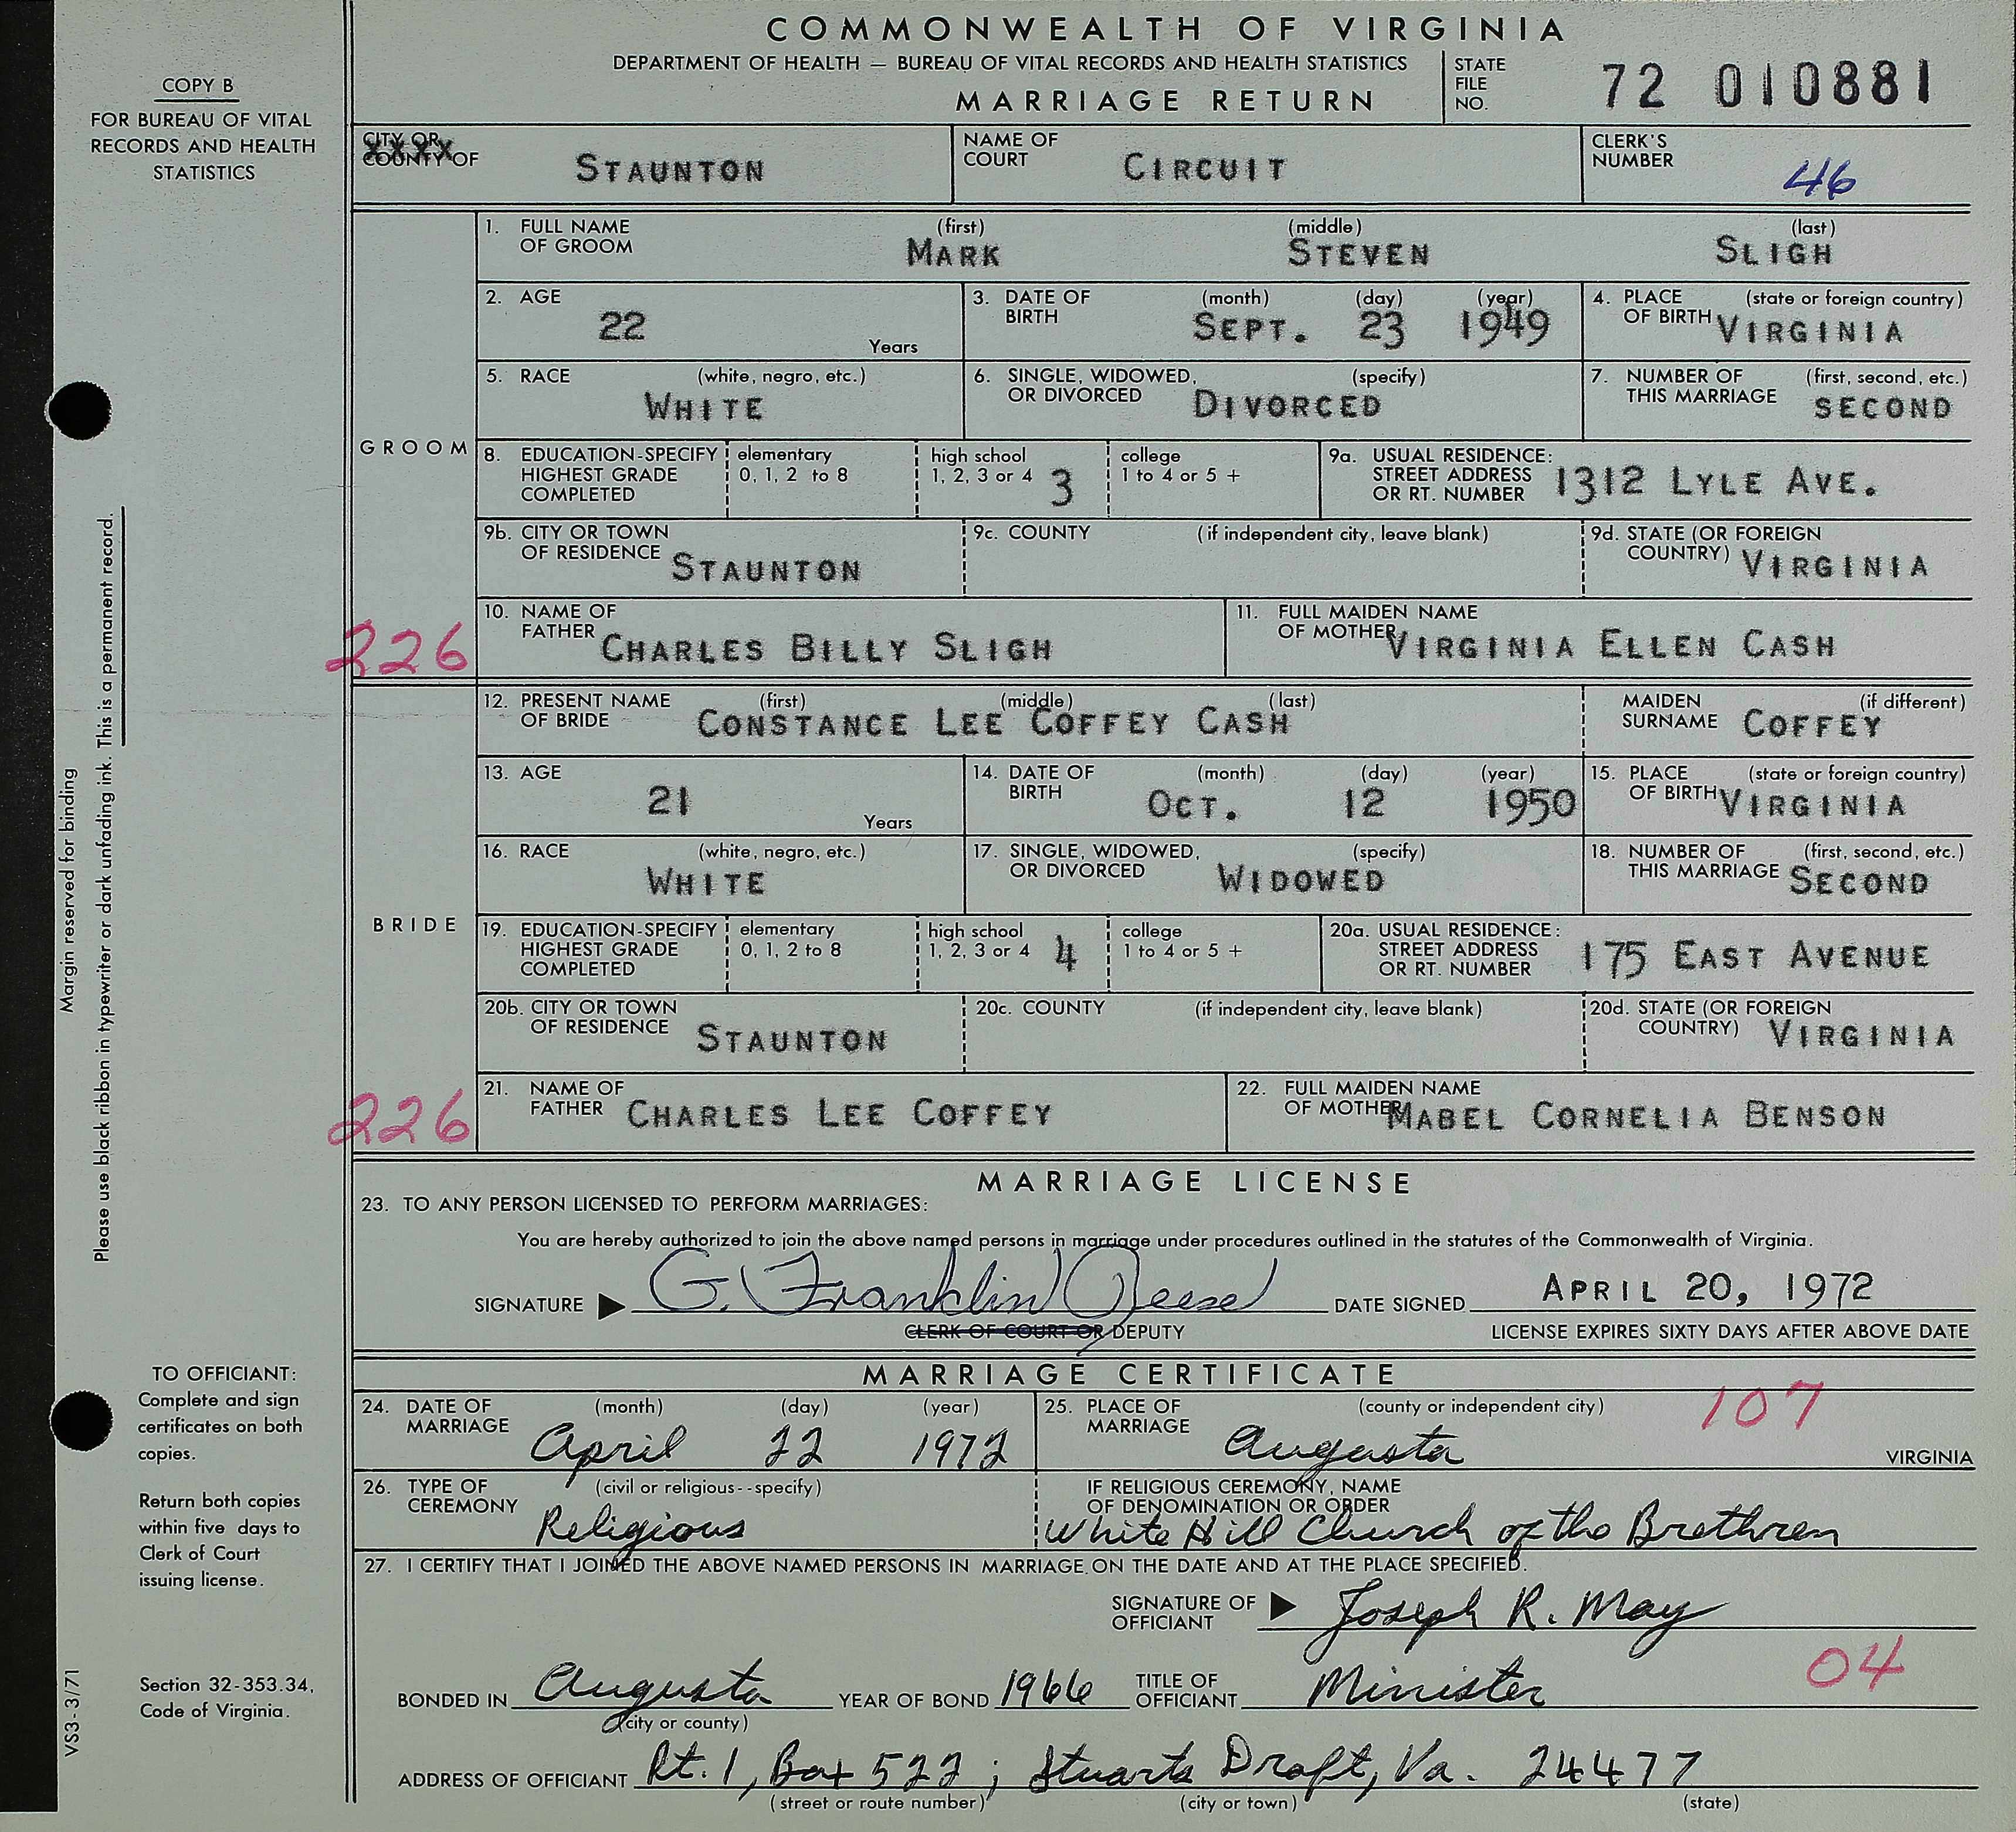 COMMONWEALTH OF VIRGINIA
DEPARTMENT OF HEALTH — BUREAU OF VITAL RECORDS AND HEALTH STATISTICS
MARRIAGE RETURN
STATE FILE NO. 72 010881
COPY B
FOR BUREAU OF VITAL
RECORDS AND HEALTH
STATISTICS
CITY OR COUNTY OF STAUNTON
NAME OF COURT CIRCUIT
CLERK'S NUMBER 46
GROOM
1. FULL NAME OF GROOM (first) MARK (middle) STEVEN (last) SLIGH
2. AGE 22 Years
3. DATE OF BIRTH (month) SEPT. (day) 23 (year) 1949
4. PLACE OF BIRTH (state or foreign country) VIRGINIA
5. RACE (white, negro, etc.) WHITE
6. SINGLE, WIDOWED, OR DIVORCED (specify) DIVORCED
7. NUMBER OF THIS MARRIAGE (first, second, etc.) SECOND
8. EDUCATION-SPECIFY HIGHEST GRADE COMPLETED elementary 0, 1, 2 to 8 high school 1, 2, 3 or 4 3 college 1 to 4 or 5 +
9a. USUAL RESIDENCE: STREET ADDRESS OR RT. NUMBER 1312 LYLE AVE.
9b. CITY OR TOWN OF RESIDENCE STAUNTON
9c. COUNTY (if independent city, leave blank)
9d. STATE (OR FOREIGN COUNTRY) VIRGINIA
226
10. NAME OF FATHER CHARLES BILLY SLIGH
11. FULL MAIDEN NAME OF MOTHER VIRGINIA ELLEN CASH
BRIDE
12. PRESENT NAME OF BRIDE (first) (middle) (last) CONSTANCE LEE COFFEY CASH
MAIDEN SURNAME (if different) COFFEY
13. AGE 21 Years
14. DATE OF BIRTH (month) OCT. (day) 12 (year) 1950
15. PLACE OF BIRTH (state or foreign country) VIRGINIA
16. RACE (white, negro, etc.) WHITE
17. SINGLE, WIDOWED, OR DIVORCED (specify) WIDOWED
18. NUMBER OF THIS MARRIAGE (first, second, etc.) SECOND
19. EDUCATION-SPECIFY HIGHEST GRADE COMPLETED elementary 0, 1, 2 to 8 high school 1, 2, 3 or 4 4 college 1 to 4 or 5 +
20a. USUAL RESIDENCE: STREET ADDRESS OR RT. NUMBER 175 EAST AVENUE
20b. CITY OR TOWN OF RESIDENCE STAUNTON
20c. COUNTY (if independent city, leave blank)
20d. STATE (OR FOREIGN COUNTRY) VIRGINIA
226
21. NAME OF FATHER CHARLES LEE COFFEY
22. FULL MAIDEN NAME OF MOTHER MABEL CORNELIA BENSON
Margin reserved for binding
Please use black ribbon in typewriter or dark unfading ink. This is a permanent record.
MARRIAGE LICENSE
23. TO ANY PERSON LICENSED TO PERFORM MARRIAGES:
You are hereby authorized to join the above named persons in marriage under procedures outlined in the statutes of the Commonwealth of Virginia.
SIGNATURE G. Franklin Reese DATE SIGNED APRIL 20, 1972
CLERK OF COURT OR DEPUTY
LICENSE EXPIRES SIXTY DAYS AFTER ABOVE DATE
MARRIAGE CERTIFICATE
24. DATE OF MARRIAGE (month) April (day) 22 (year) 1972
25. PLACE OF MARRIAGE (county or independent city) Augusta VIRGINIA
107
26. TYPE OF CEREMONY (civil or religious--specify) Religious
IF RELIGIOUS CEREMONY, NAME OF DENOMINATION OR ORDER White Hill Church of the Brethren
27. I CERTIFY THAT I JOINED THE ABOVE NAMED PERSONS IN MARRIAGE ON THE DATE AND AT THE PLACE SPECIFIED.
SIGNATURE OF OFFICIANT Joseph R. May
04
BONDED IN Augusta (city or county) YEAR OF BOND 1966 TITLE OF OFFICIANT Minister
ADDRESS OF OFFICIANT Rt. 1, Box 522; Stuarts Draft, Va. 24477
(street or route number) (city or town) (state)
TO OFFICIANT:
Complete and sign
certificates on both
copies.
Return both copies
within five days to
Clerk of Court
issuing license.
Section 32-353.34,
Code of Virginia.
VS3-3/71